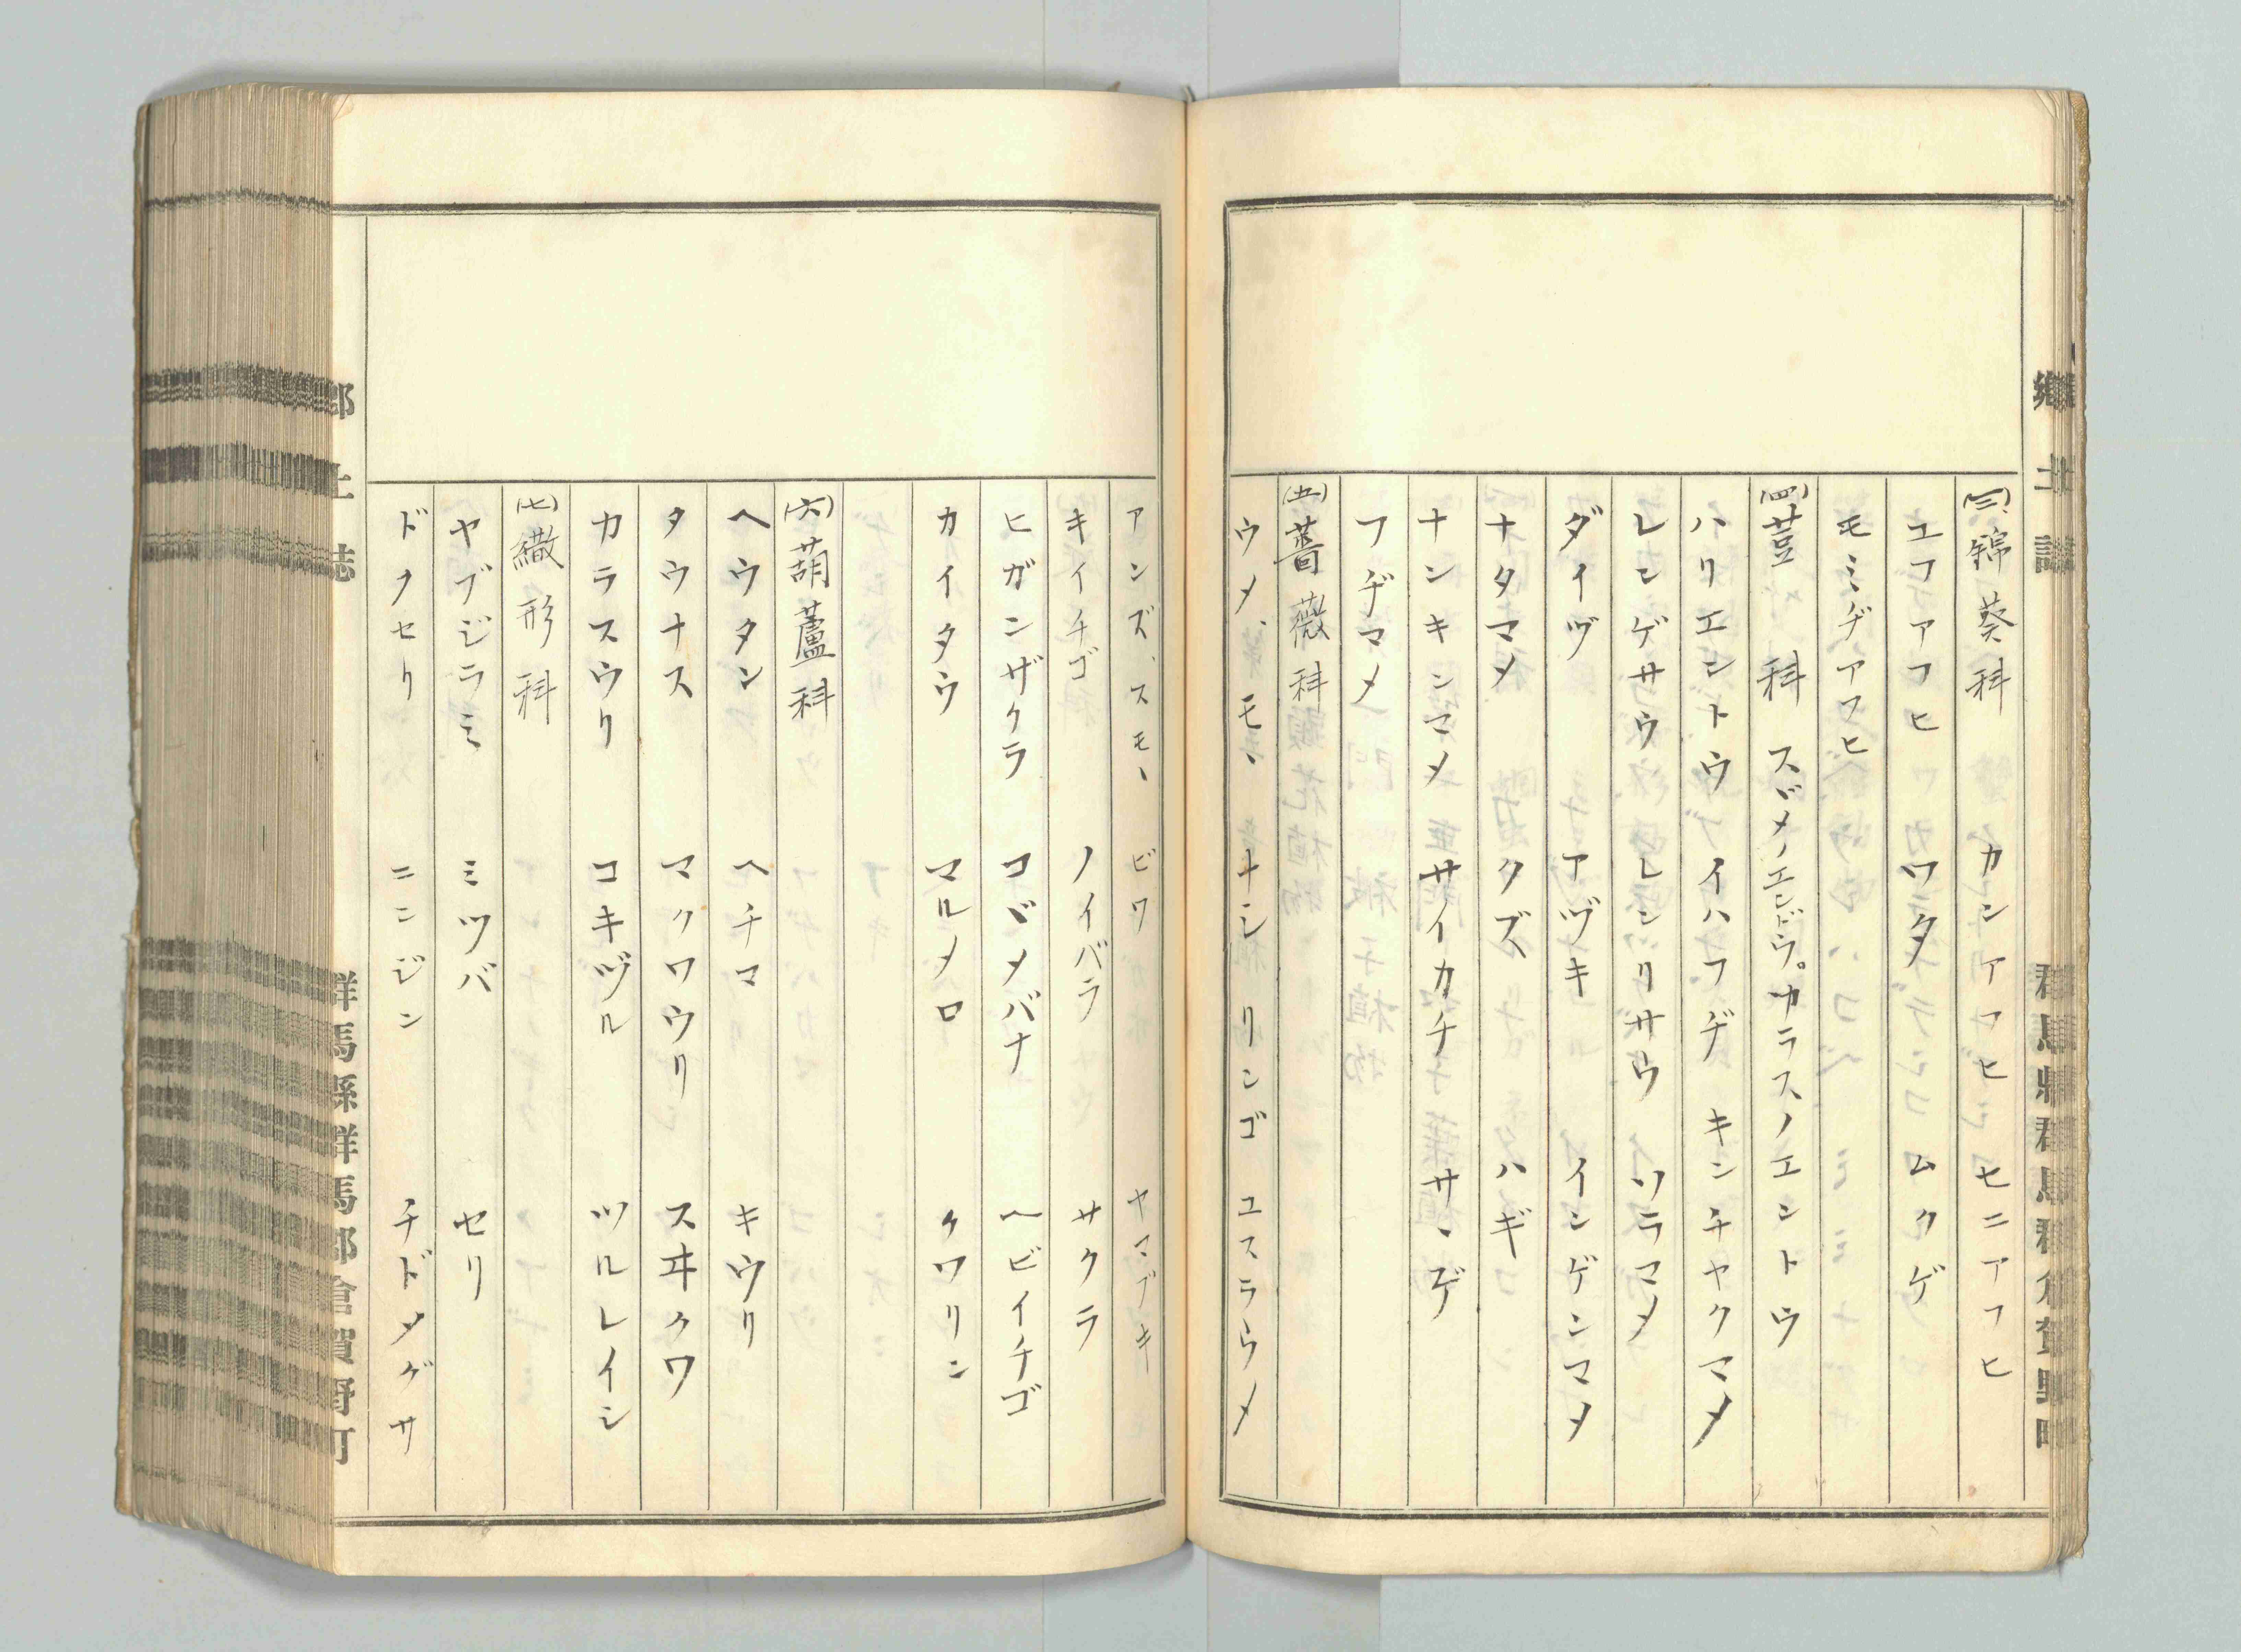 郷土誌
群馬縣群馬郡倉賀野町
(三)錦葵科 カンアフヒ セニアフヒ
コフアフヒ ワタ ムクゲ
モミヂアフヒ
(四)荳科 スヾメノエンドウ。カラスノエントウ
ハリエントウ イハフヂ キンチャクマメ
レンゲサウ レンリサウ ソラマメ
ダイヅ アヅキ インゲンマメ
ナタマメ クズ ハギ
ナンキンマメ サイカチ サヽゲ
フヂマメ
(五)薔薇科
ウメ、モヽ ナシ リンゴ ユスラウメ
アンズ、スモヽ ビワ ヤマブキ
キイチゴ ノイバラ サクラ
ヒガンザクラ コヾメバナ ヘビイチゴ
カイタウ マルメロ クワリン
(六)葫蘆科
ヘウタン ヘチマ キウリ
タウナス マクワウリ スヰクワ
カラスウリ コキヅル ツルレイシ
(七)繖形科
ヤブジラミ ミツバ セリ
ドクセリ ニンジン チドメグサ
郷土誌
群馬縣群馬郡倉賀野町